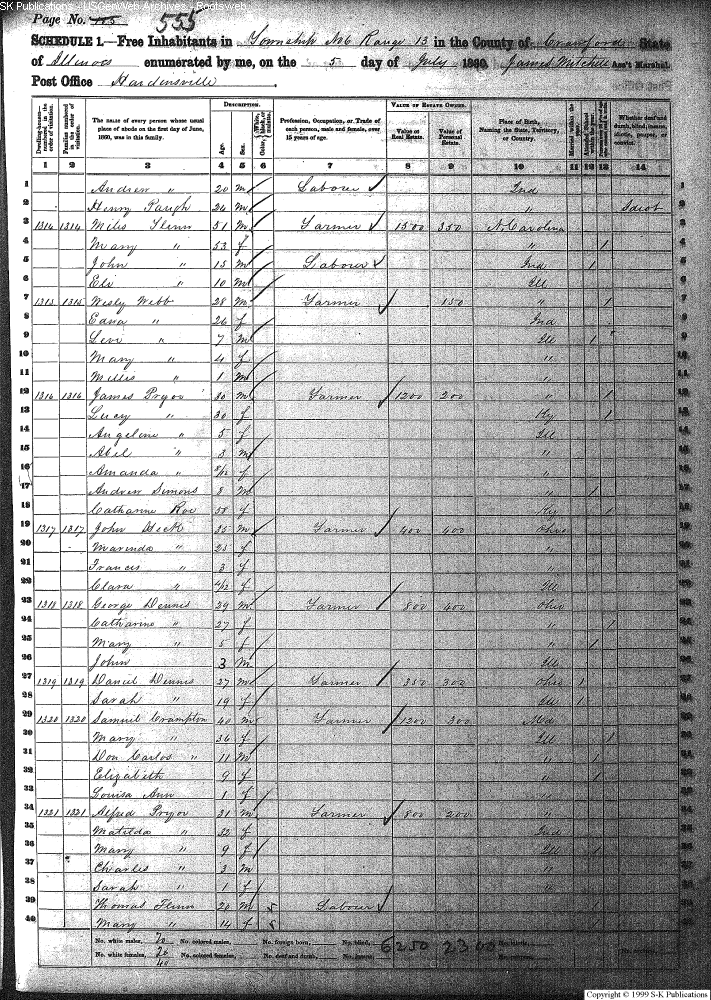 SK Publications - USGenWeb Archives - Rootsweb
Page No. 115 555
SCHEDULE 1.—Free Inhabitants in Township No 6 Range 13 in the County of Crawford State
of Illinois enumerated by me, on the 5 day of July 1860. James Mitchell Ass't Marshal.
Post Office Hardinsville
Dwelling-houses—numbered in the order of visitation.
Families numbered in the order of visitation.
The name of every person whose usual place of abode on the first day of June, 1860, was in this family.
DESCRIPTION.
Age.
Sex.
Color, White, black, or mulatto.
Profession, Occupation, or Trade of each person, male and female, over 15 years of age.
VALUE OF ESTATE OWNED.
Value of Real Estate.
Value of Personal Estate.
Place of Birth, Naming the State, Territory, or Country.
Married within the year.
Whether deaf and dumb, blind, insane, idiotic, pauper, or convict.
1 2 3 4 5 6 7 8 9 10 11 12 13 14
1 Andrew " 20 m Labourer Ind 1
2 Henry Paugh 24 m " Idiot 2
3 1314 1314 Milis Flinn 51 m Farmer 1500 350 N Carolina 3
4 Mary " 53 f " 1 4
5 John " 15 m Labourer Ind 1 5
6 Eli " 10 m Ill 6
7 1315 1315 Wesly Webb 28 m Farmer 150 " 1 7
8 Edna " 26 f Ind 8
9 Levi " 7 m Ill 1 9
10 Mary " 4 f " 10
11 Millis " 1 m " 11
12 1316 1316 James Pryor 30 m Farmer 1200 200 " 1 12
13 Lucy " 30 f Ky 1 13
14 Angeline " 5 f Ill 14
15 Abel " 3 m " 15
16 Amanda " 8/12 f " 16
17 Andrew Simons 8 m " 1 17
18 Catharine Roe 58 f Ky 1 18
19 1317 1317 John Heck 35 m Farmer 400 400 Ohio 19
20 Marinda " 25 f " 20
21 Francis " 3 f " 21
22 Clara " 4/12 f Ill 22
23 1318 1318 George Dennis 29 m Farmer 800 400 Ohio 23
24 Catharine " 27 f " 1 24
25 Mary " 5 f " 1 25
26 John 3 m Ill 26
27 1319 1319 Daniel Dennis 27 m Farmer 350 300 Ohio 1 27
28 Sarah " 19 f Ill 1 28
29 1320 1320 Samuel Crampton 40 m Farmer 1200 300 Md 29
30 Mary " 36 f Ill 1 30
31 Don Carlos " 11 m " 1 31
32 Elizabeth 9 f " 1 32
33 Louisa Ann 1 f " 33
34 1321 1321 Alfred Pryor 31 m Farmer 800 200 " 34
35 Matilda " 32 f Ind 35
36 Mary " 9 f Ill 1 36
37 Charles " 3 m " 37
38 Sarah " 1 f " 38
39 Thomas Flinn 20 m Labourer " 39
40 Mary " 14 f " 1 40
No. white males, 20 No. colored males, No. foreign born, No. blind, 6250 2300
No. white females, 20 No. colored females, No. deaf and dumb, No. insane,
40
Copyright © 1999 S-K Publications